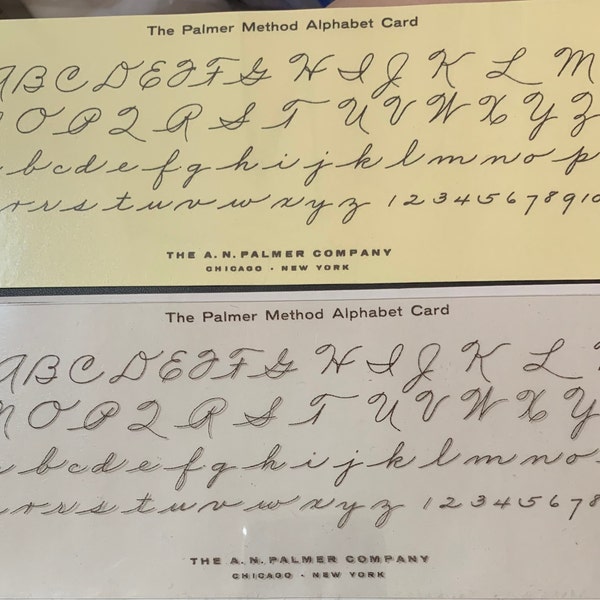 The Palmer Method Alphabet Card
A B C D E F F G H I J K L M
O P Q R S T U V W X Y Z
b c d e f g h i j k l m n o p
r r s t u v w x y z 1 2 3 4 5 6 7 8 9 10
THE A. N. PALMER COMPANY
CHICAGO · NEW YORK
The Palmer Method Alphabet Card
A B C D E F F G H I J K L
N O P Q R S T U V W X Y
a b c d e f g h i j k l m n o
r r s t u v w x y z 1 2 3 4 5 6 7 8
THE A. N. PALMER COMPANY
CHICAGO · NEW YORK